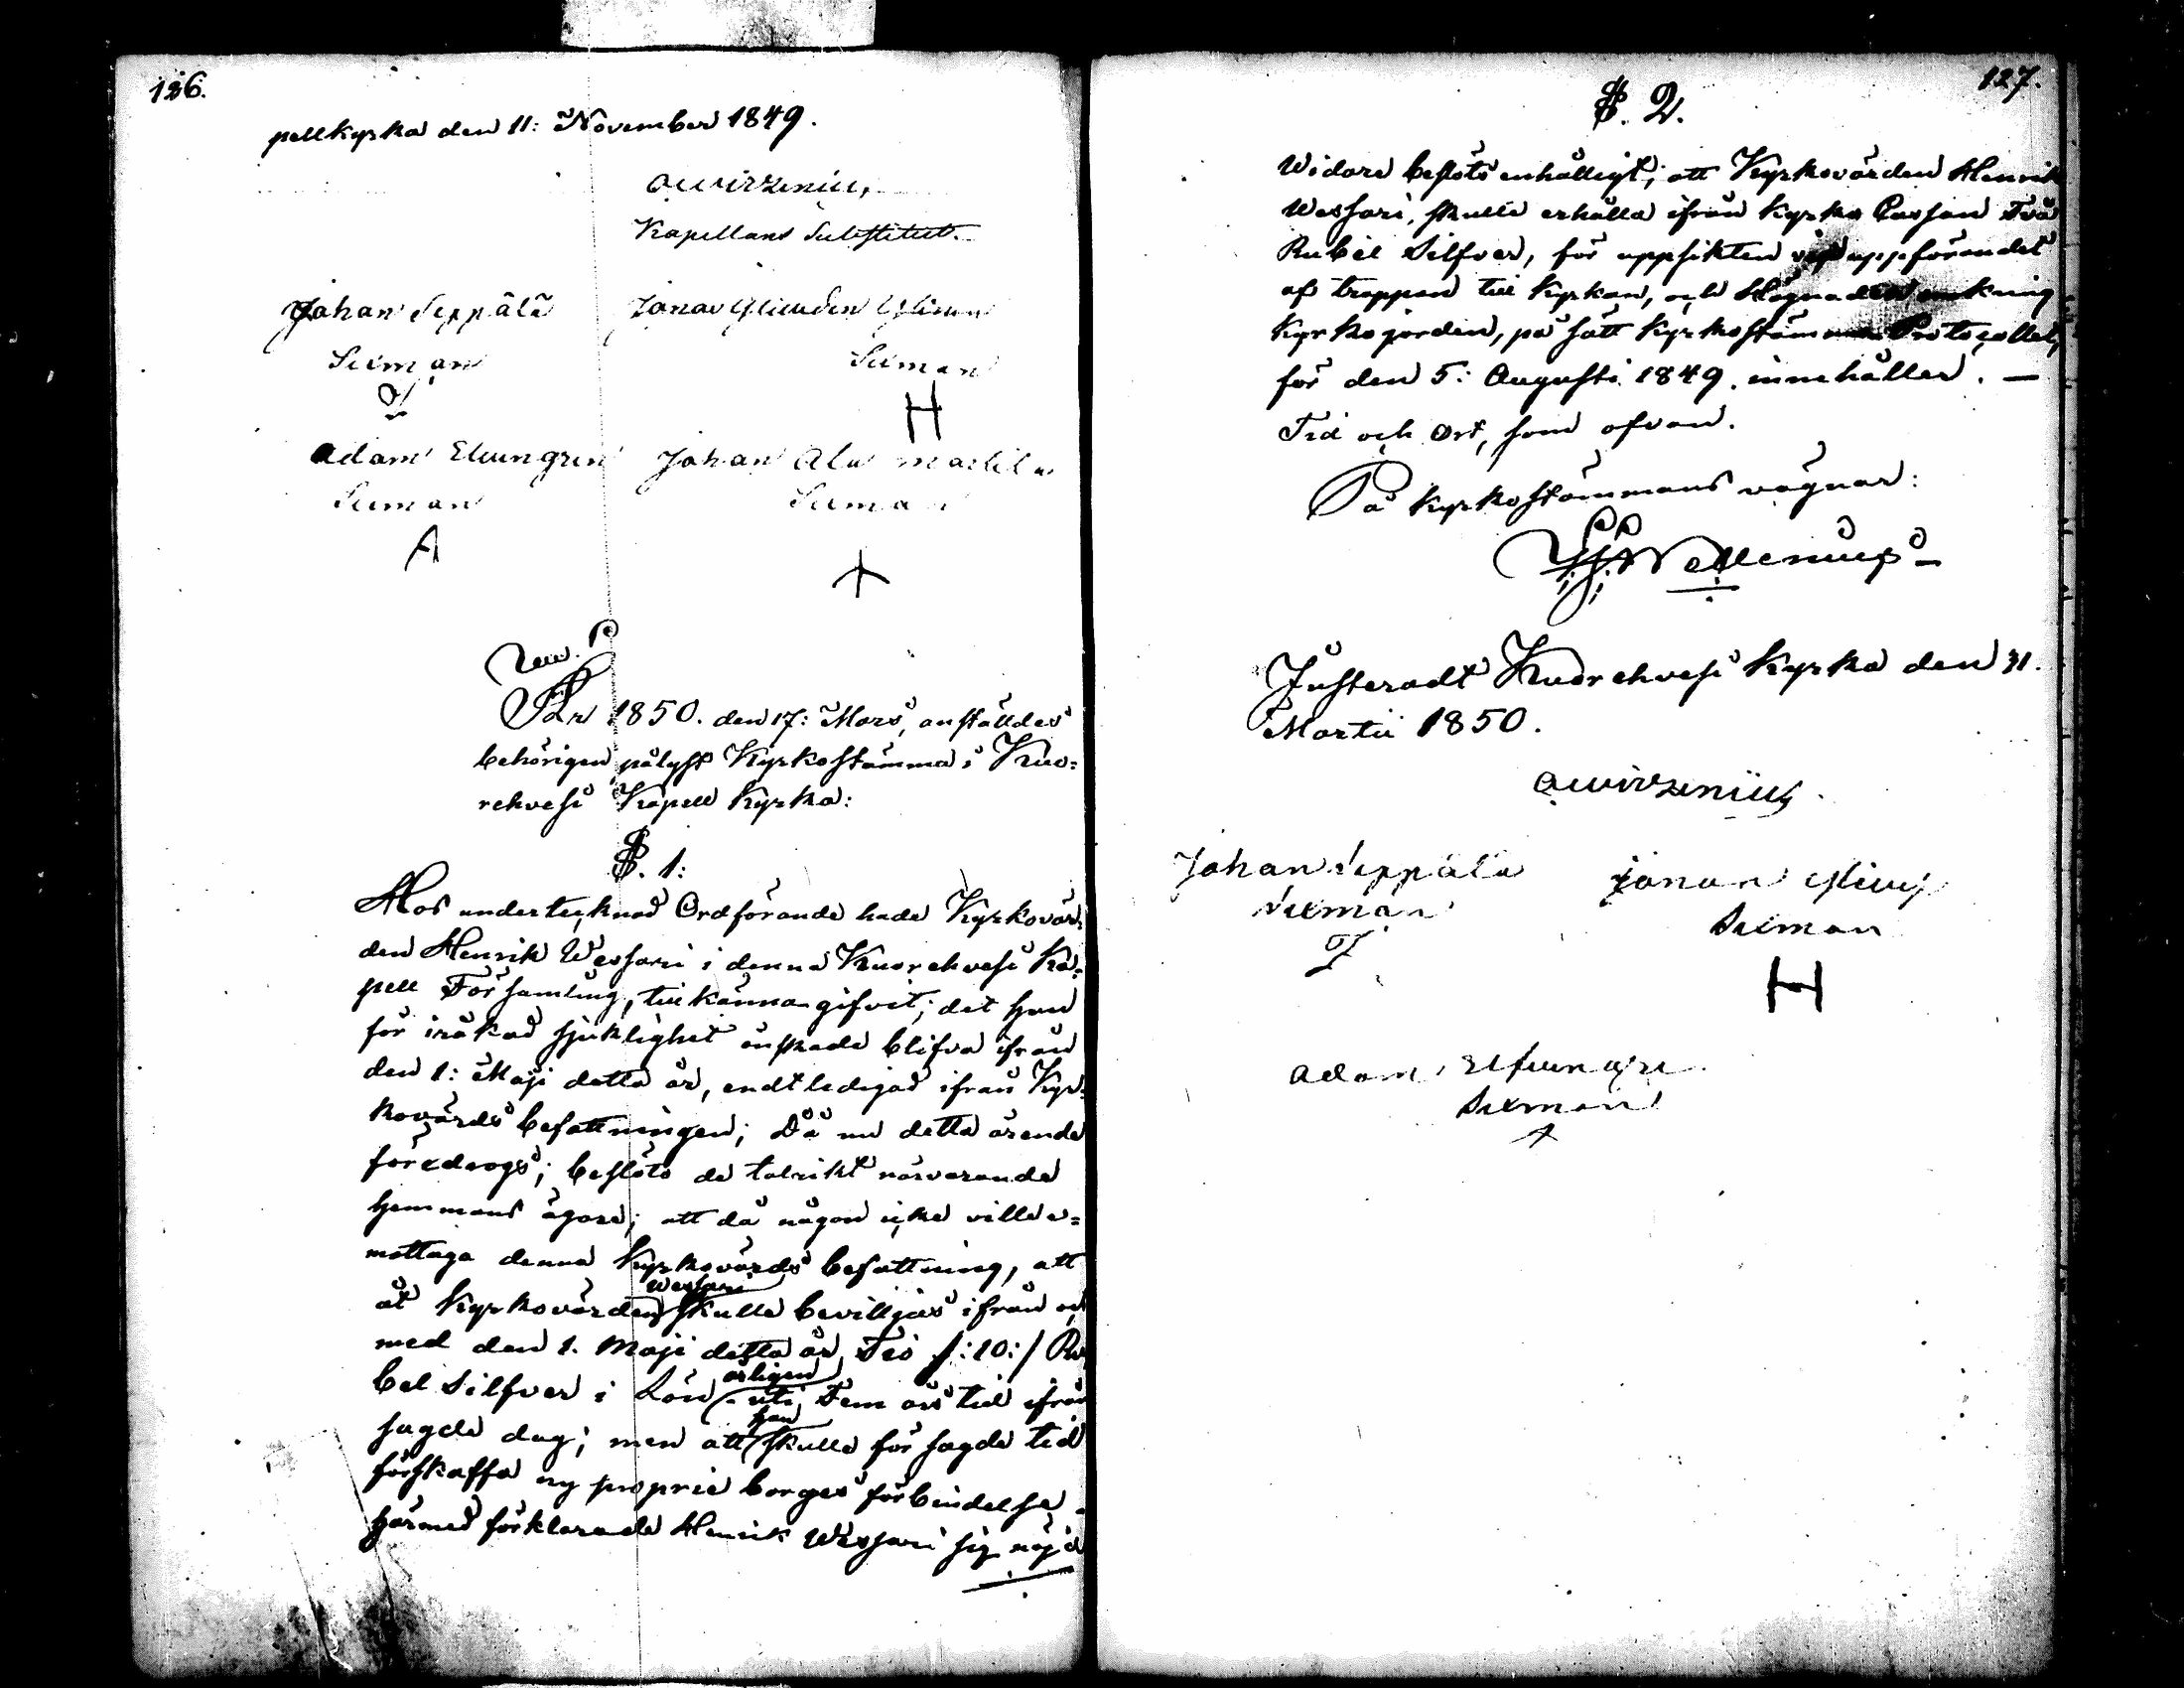 126.
pellkyrka den 11: November 1849.
AWirzenius,
Kapellans Substitut.
Johan Seppälä Jonas
Sexman Sexman
H
Adam Elfvengren Johan Ala Mattila
Sexman Sexman
A
År 1850. den 17: Mars, anställdes
behörigen pålyst Kyrkostämma i Kuo=
rehvesi Kapell Kyrka:
§. 1:
Hos undertecknad Ordförande hade Kyrkovär=
den Henrik Wessari i denna Kuorehvesi Ka=
pell Församling, tillkänna gifvit; det han
för iråkad sjuklighet önskade blifva ifrån
den 1: Maji detta år, endtledigad ifrån Kyr=
kovärds befattningen; Då nu detta ärende
föredrogs; beslöto de talrikt närvarande
hemmans ägare; att då någon icke ville e=
mottaga denna Kyrkovärds befattning, att
Wessari
åt Kyrkovärden skulle bevilljas ifrån och
med den 1. Maji detta år Tio /:10:/ Ru
bel Silfver i Lön uti Fem års tid ifrån
årligen
han
sagde dag; men att skulle för sagde tid
förskaffa ny proprie borges förbindelse.
härmed förklarade Henrik Wessari sig nöjd
127.
§. 2.
Widare beslöts enhälligt; att Kyrkovärden Henrik
Wessari, skulle erhålla ifrån Kyrko Cassan Två
Rubel Silfver, för uppsikten vid uppförandet
af trappan till Kyrkan, och Hägnaden omkring
Kyrkogården, på sätt Kyrkostämmo Protocollet,
för den 5: Augusti 1849. innehåller. —
Tid och Ort, som ofvan.
På Kyrkostämmans vägnar:
Justeradt Kuorehvesi Kyrka den 31.
Martii 1850.
AWirzenius.
Johan Seppälä Jonas
Sexman Sexman
H
Adam Elfvengren
Sexman